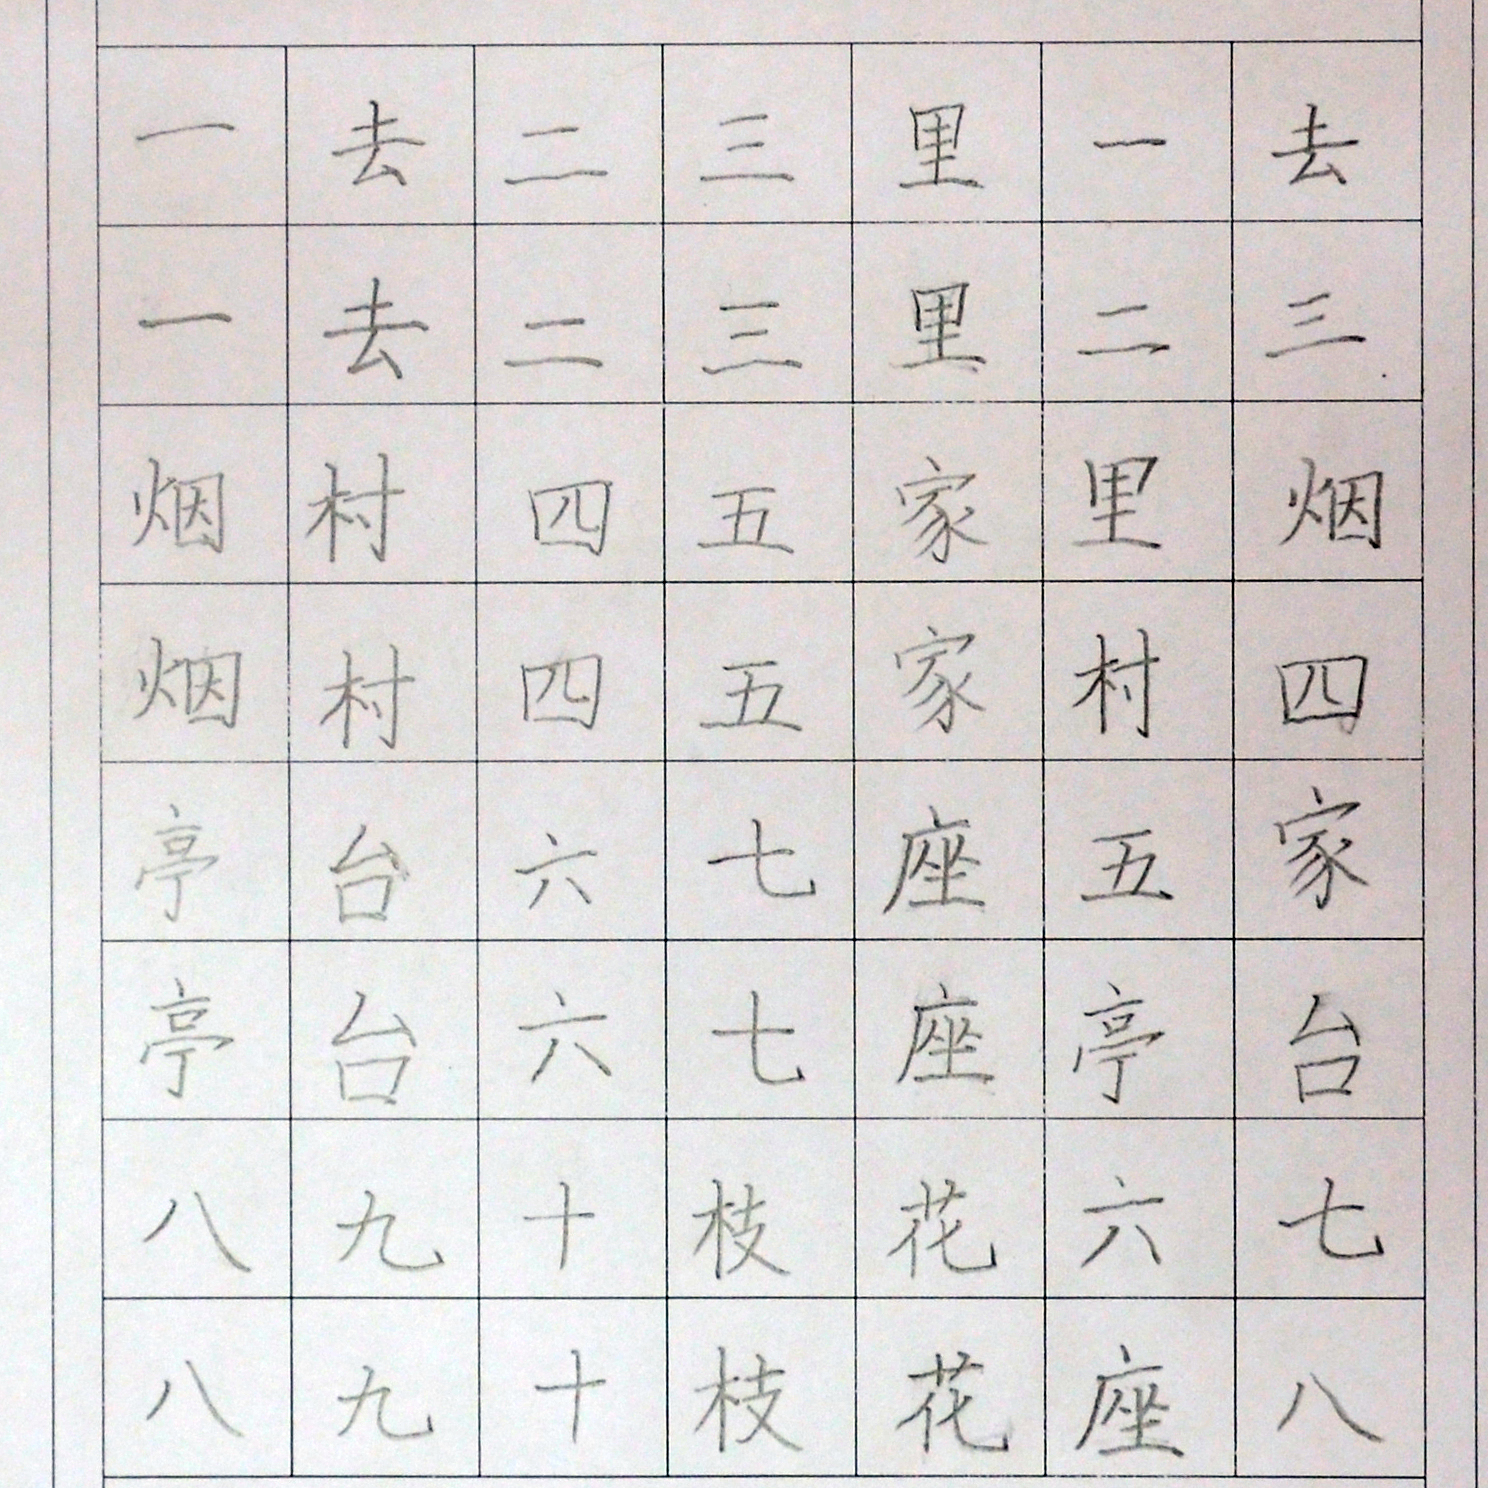 一去二三里一去
一去二三里二三
烟村四五家里烟
烟村四五家村四
亭台六七座五家
亭台六七座亭台
八九十枝花六七
八九十枝花座八